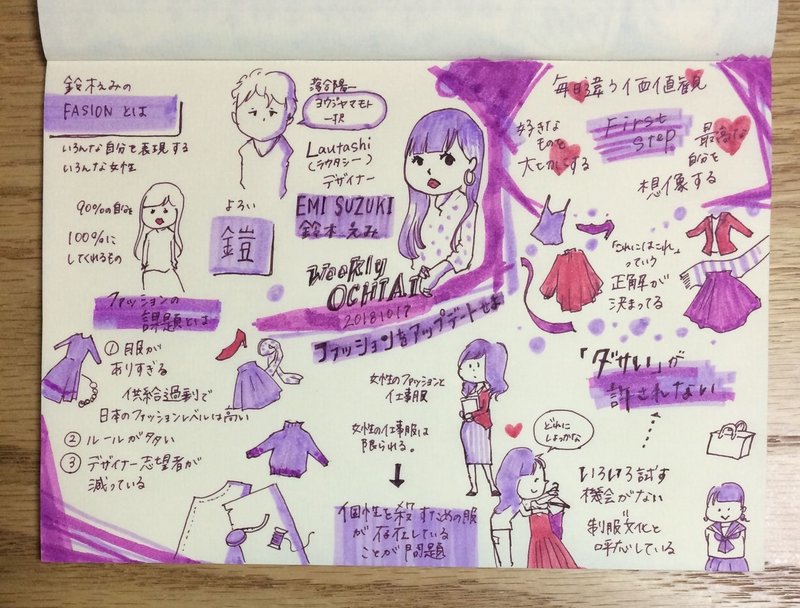 鈴木えみの
FASIONとは
いろんな自分を表現する
いろんな女性
90%の自分を
100%に
してくれるもの
よろい
鎧
落合陽一
ヨウジヤマモト
一択
Lautashi
(ラウタシー)
デザイナー
EMI SUZUKI
鈴木えみ
weekly
OCHIAI
20181017
ファッションをアップデートせよ
毎日違う価値観
First
step
好きな
ものを
大切にする
最高な
自分を
想像する
「これにはこれ」
っていう
正解が
決まってる
ファッションの
課題とは
① 服が
ありすぎる
供給過剰で
日本のファッションレベルは高い
② ルールが多い
③ デザイナー志望者が
減っている
女性のファッションと
仕事服
女性の仕事服は
限られる。
個性を殺すための服
が存在している
ことが問題
「ダサい」が
許されない
どれに
しよっかな
いろいろ試す
機会がない
制服文化と
呼応している